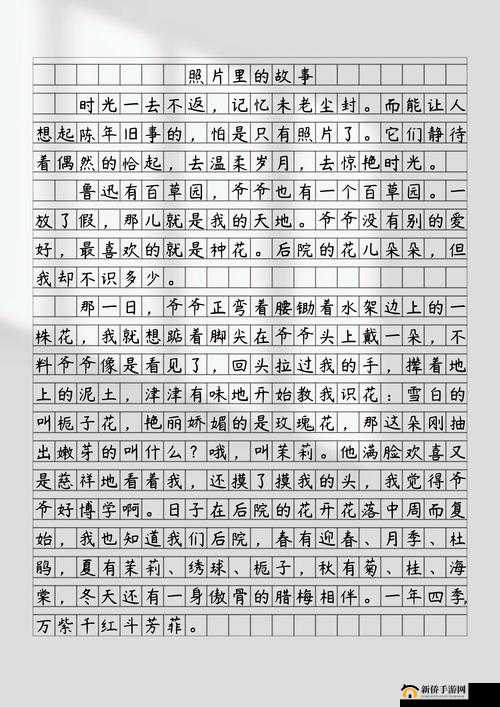 照片里的故事
时光一去不返，记忆未老尘封。而能让人
想起陈年旧事的，怕是只有照片了。它们静待
着偶然的恰起，去温柔岁月，去惊艳时光。
鲁迅有百草园，爷爷也有一个百草园。一
放了假，那儿就是我的天地。爷爷没有别的爱
好，最喜欢的就是种花。后院的花儿朵朵，但
我却不识多少。
那一日，爷爷正弯着腰锄着水架边上的一
株花，我就想踮着脚尖在爷爷头上戴一朵，不
料爷爷像是看见了，回头拉过我的手，撵着地
上的泥土，津津有味地开始教我识花：雪白的
叫栀子花，艳丽娇媚的是玫瑰花，那这朵刚抽
出嫩芽的叫什么？哦，叫茉莉。他满脸欢喜又
是慈祥地看着我，还摸了摸我的头，我觉得爷
爷好博学啊。日子在后院的花开花落中周而复
始，我也知道我们后院，春有迎春、月季、杜
鹃，夏有茉莉、绣球、栀子，秋有菊、桂、海
棠，冬天还有一身傲骨的腊梅相伴。一年四季，
万紫千红斗芳菲。
新侨手游网